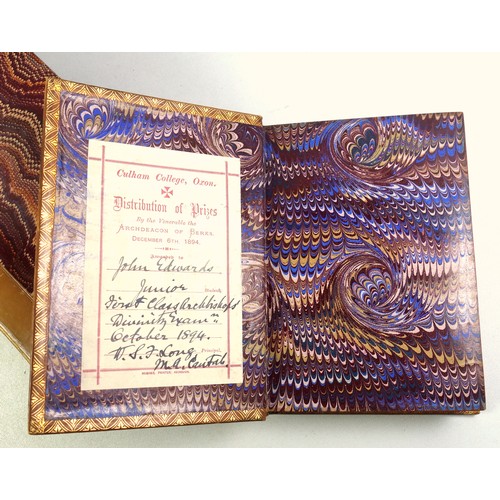 Culham College, Oxon.
Distribution of Prizes
By the Venerable the
Archdeacon of Berks.
December 6th 1894.
Awarded to
John Edwards
Junior
First Class Archbishops
Divinity Examn
October 1894.
W. S. J. Long
Principal.
M.A. Cantab